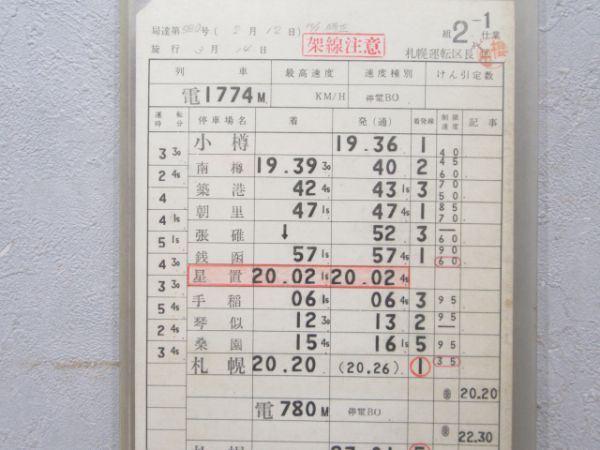 局達第580号( 2月12日)
組 2-1 仕業
施行 3月14日 架線注意 札幌運転区長
列 車 最高速度 速度種別 けん引定数
電1774M KM/H 停電BO
運転時分 停車場名 着 発(通) 着発線 制限速度 記事
小樽 19.36 1
3 30 40
南樽 19.39 30 40 2 45
2 45 60
築港 42 45 43 15 3 70
4 50
朝里 47 15 47 45 1 85
4 15 70
張碓 ↓ 52 3 —
5 15 60
銭函 57 15 57 45 1 90
4 30 60
星置 20.02 15 20.02 45
3 30
手稲 06 15 06 45 3 95
5 45
琴似 12 30 13 2 —
2 45
桑園 15 45 16 15 5 95
3 45 35
札幌 20.20 (20.26) 1
20.20
電780M 停電BO
22.30